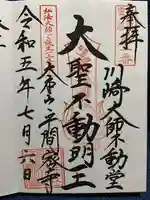 奉拝
川崎大師不動堂
大聖不動明王
大本山平間寺
令和五年七月六日